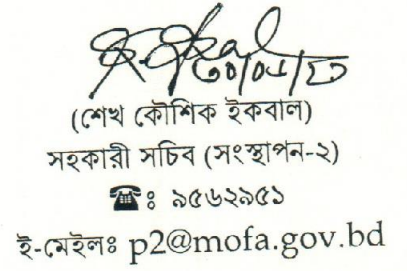 (শেখ কৌশিক ইকবাল)
সহকারী সচিব (সংস্থাপন-২)
☎ঃ ৯৫৬২৯৫১
ই-মেইলঃ p2@mofa.gov.bd